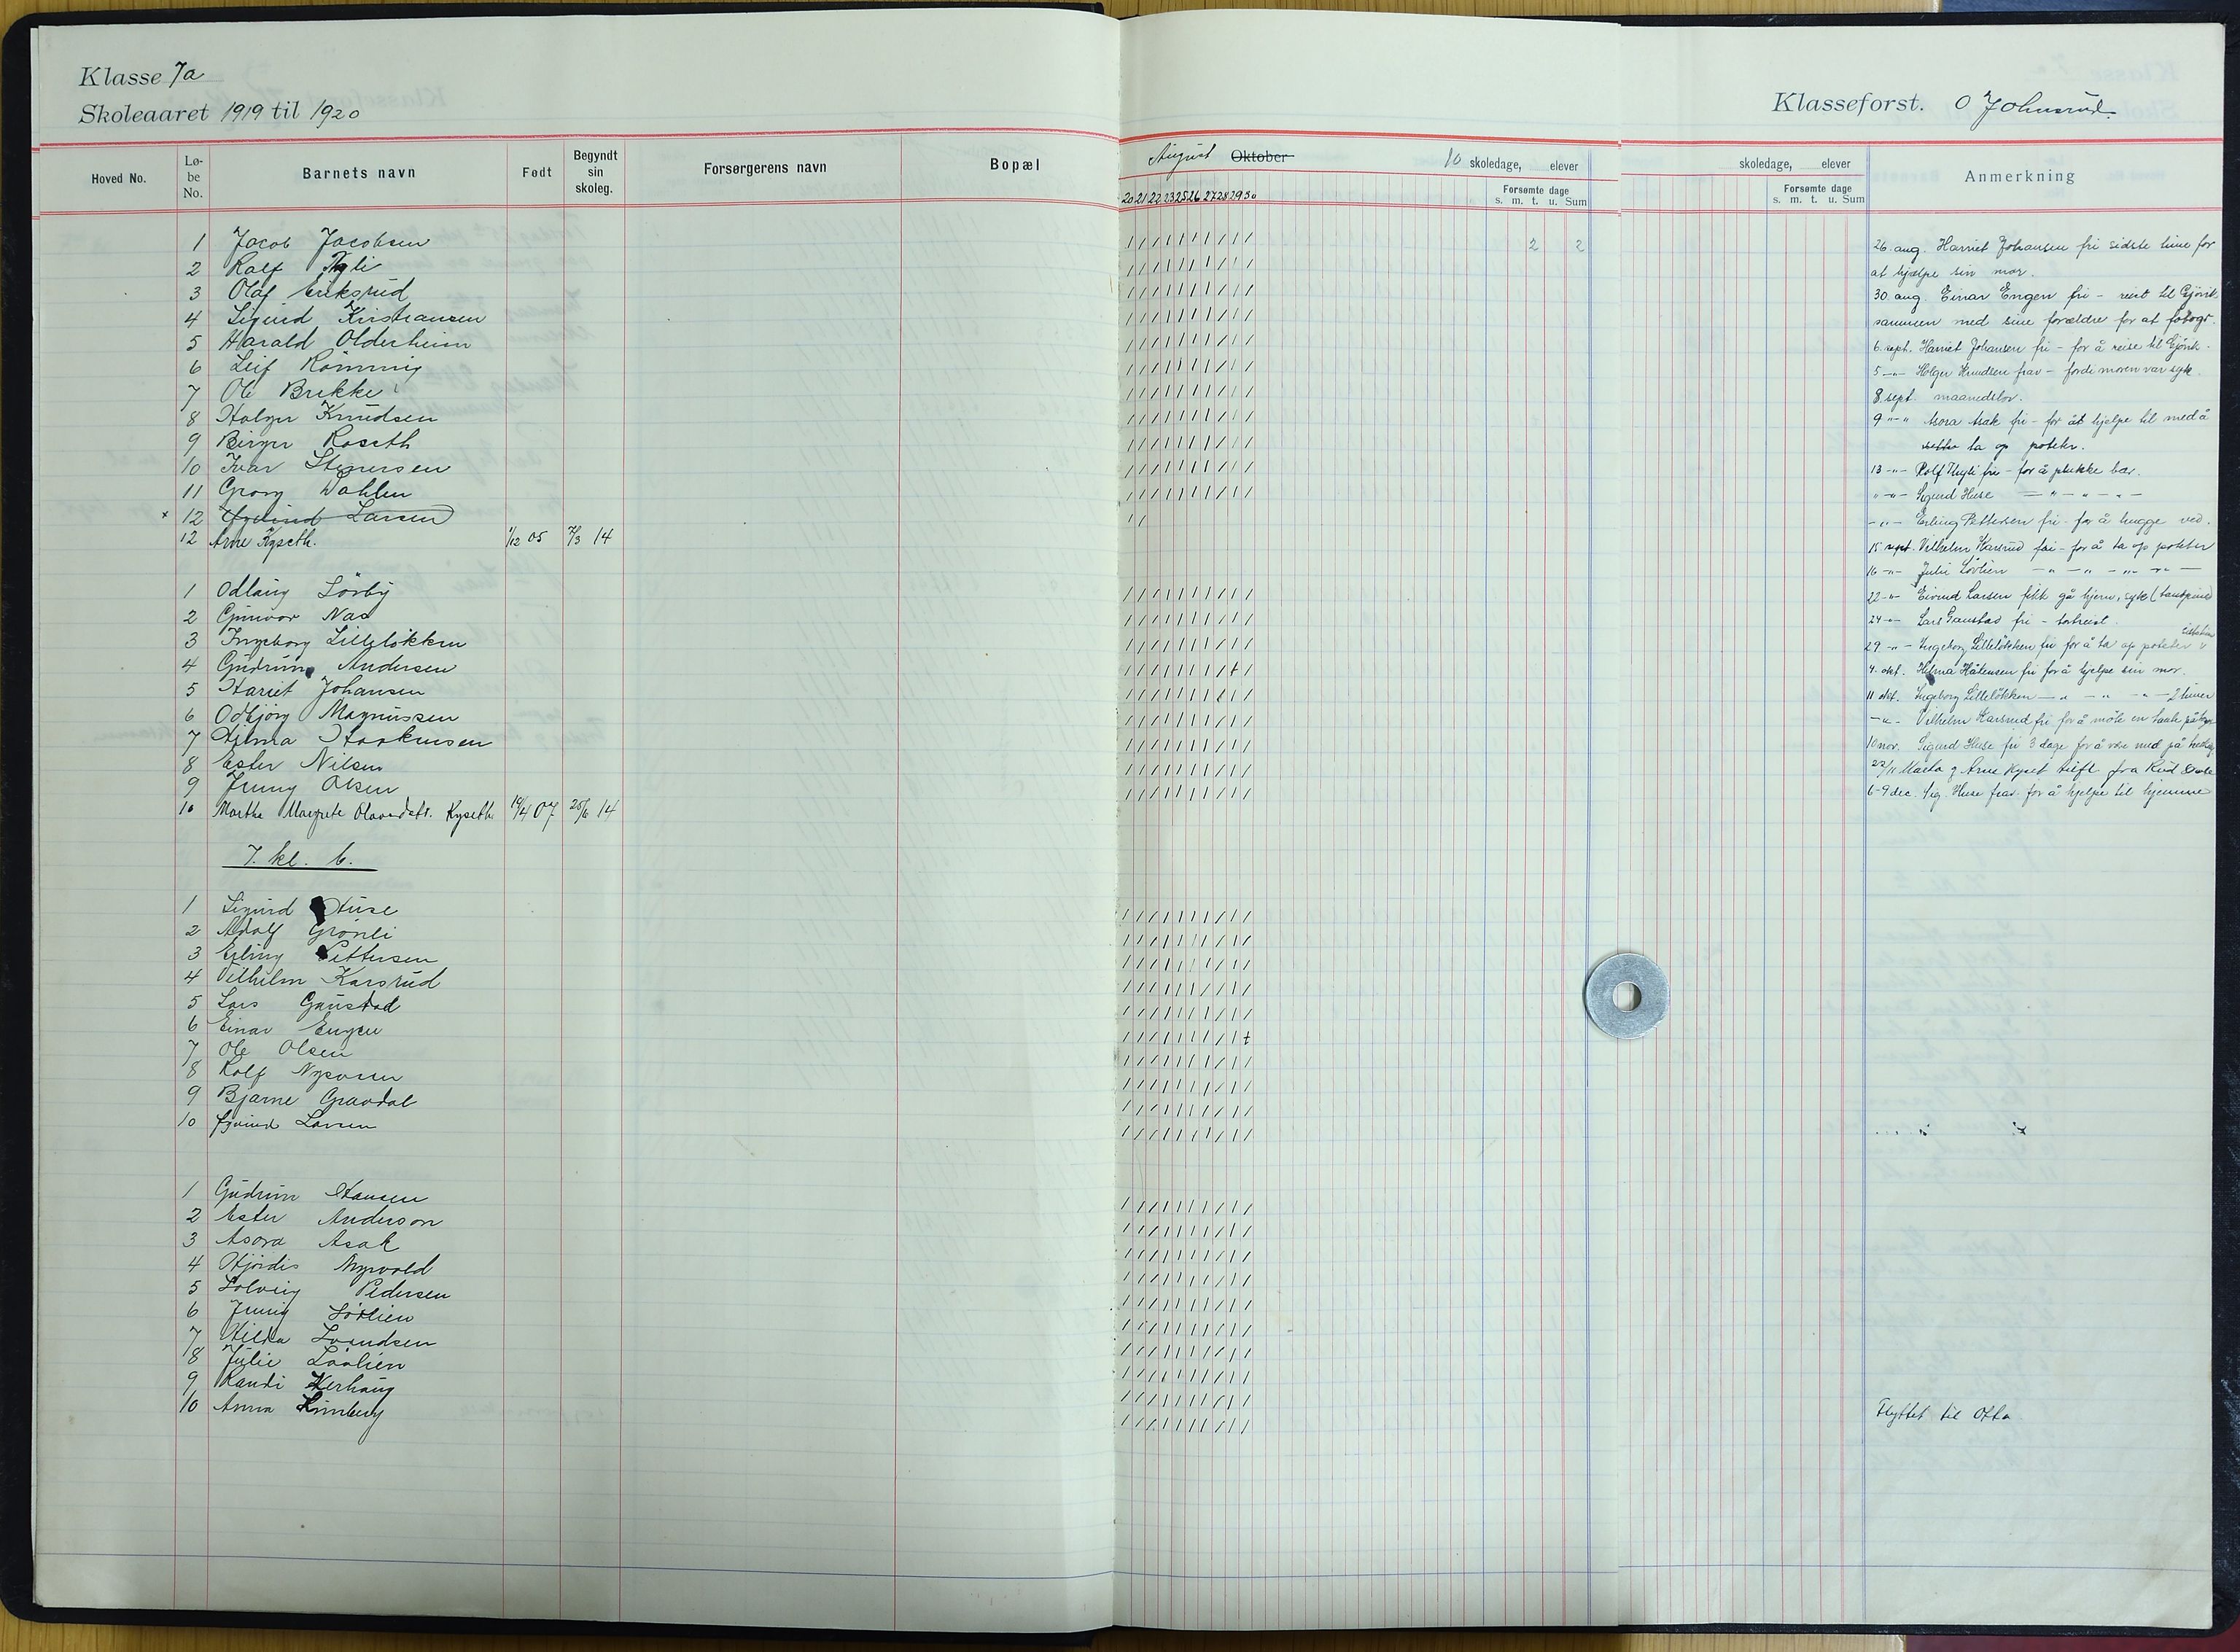 Klasse 7a
Skoleaaret 1919 til 1920
Klasseforst. O Johnsrud.
Hoved No.
Lø-
be
No.
Barnets navn
Født
Begyndt
sin
skoleg.
Forsørgerens navn
Bopæl
August Oktober
10 skoledage, elever
Forsømte dage
s. m. t. u. Sum
20 21 22 23 25 26 27 28 29 30
skoledage, elever
Forsømte dage
s. m. t. u. Sum
Anmerkning
1 Jacob Jacobsen 2 2
2 Rolf Thyli
3 Olaf Eriksrud
4 Sigurd Kristiansen
5 Harald Olderheim
6 Leif Rönning
7 Ole Brekke
8 Holger Knudsen
9 Birger Roseth
10 Ivar Stenersen
11 Georg Dahlen
× 12 Øyvind Larsen
12 Arne Kyseth. 1/12 05 7/3 14
1 Odlaug Sörby
2 Gunvor Nas
3 Ingeborg Lillelökken
4 Gudrun Andersen
5 Hariet Johansen
6 Odbjörg Magnussen
7 Hjelma Haakensen
8 Ester Nilsen
9 Jenny Olsen
10 Martha Margrete Olavsdatr. Kyseth 14/4 07 25/6 14
7. kl. b.
1 Sigurd Huse
2 Adolf Grönli
3 Erling Pettersen
4 Vilhelm Karsrud
5 Lars Gaustad
6 Einar Engen
7 Ole Olsen
8 Rolf Nysveen
9 Bjarne Gravdal
10 Øyvind Larsen
1 Gudrun Hansen
2 Ester Anderson
3 Asora Asak
4 Hjördis Myrvold
5 Solveig Pedersen
6 Jenny Sörlien
7 Hilda Svendsen
8 Julie Lövlien
9 Randi Kerhaug
10 Anna Limberg
26. aug. Harriet Johansen fri sidste time for
at hjælpe sin mor.
30. aug. Einar Engen fri – reist til Gjövik
sammen med sine forældre for at fotogr.
6. sept. Harriet Johansen fri – for å reise til Gjövik.
5 –"– Holger Knudsen frav – fordi moren var syk.
8. sept. maanedslov.
9 –"– Asora Asak fri – for at hjelpe til med å
ta op poteter.
13 –"– Rolf Thyli fri – for å plukke bær.
" –"– Sigurd Huse – " – " – " –
–"– Erling Pettersen fri for å hugge ved.
15 sept. Vilhelm Karsrud fri – for å ta op poteter
16 –"– Julie Lövlien – " – " – " – " –
22 –"– Eivind Larsen fikk gå hjem, syk (tandpine)
24 –"– Lars Gaustad fri – bortreist.
29 –"– Ingeborg Lillelökken fri for å ta op poteter
4. okt. Hilma Håkensen fri for å hjelpe sin mor.
11 okt. Ingeborg Lillelökken – " – " – " – 2 timer
–"– Vilhelm Karsrud fri for å möte en tante på
10 nov. Sigurd Huse fri 3 dage for å være med på
22/11 Marta og Arne Kyset tilfl. fra Rud
6–9 dec. Sig. Huse frav. for å hjelpe til hjemme
Flyttet til Otta